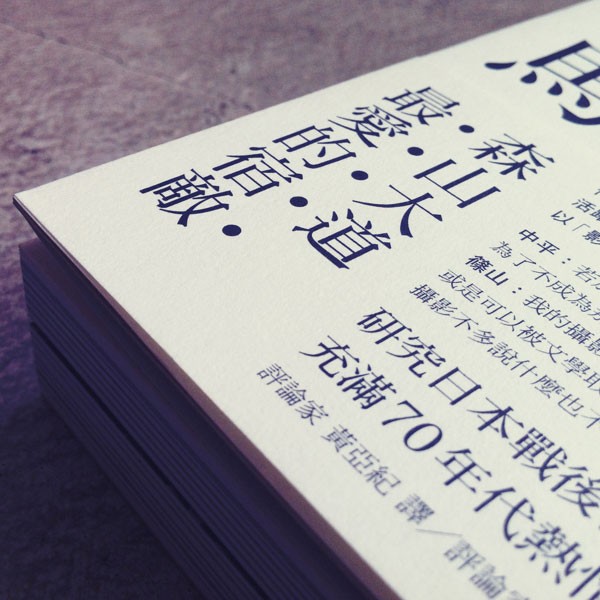 森山大道
最愛的宿敵
以「影
中平：若
為了不成為
篠山：我的攝影
或是可以被文學
攝影不多說什麼也不
研究日本戰後
充滿70年代熱情
評論家 黃亞紀 譯／評論家